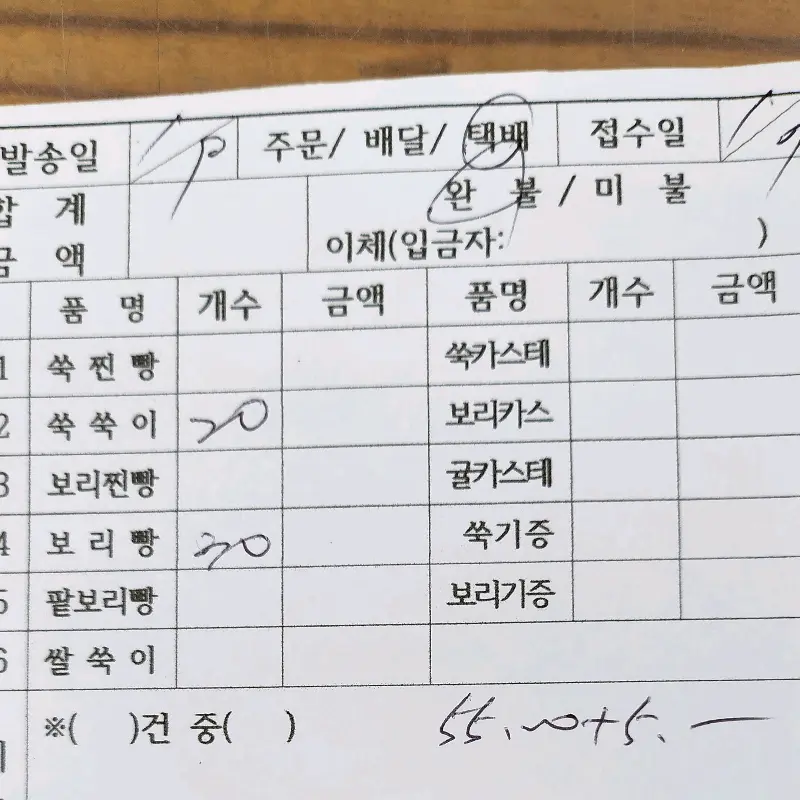 발송일 주문/ 배달/ 택배 접수일
합 계 금 액 완 불 / 미 불
이체(입금자: )
품 명 개수 금액 품명 개수 금액
1 쑥 찐 빵 쑥카스테
2 쑥 쑥 이 20 보리카스
3 보리찐빵 귤카스테
4 보 리 빵 30 쑥기증
5 팥보리빵 보리기증
6 쌀 쑥 이
※( )건 중( ) 55.